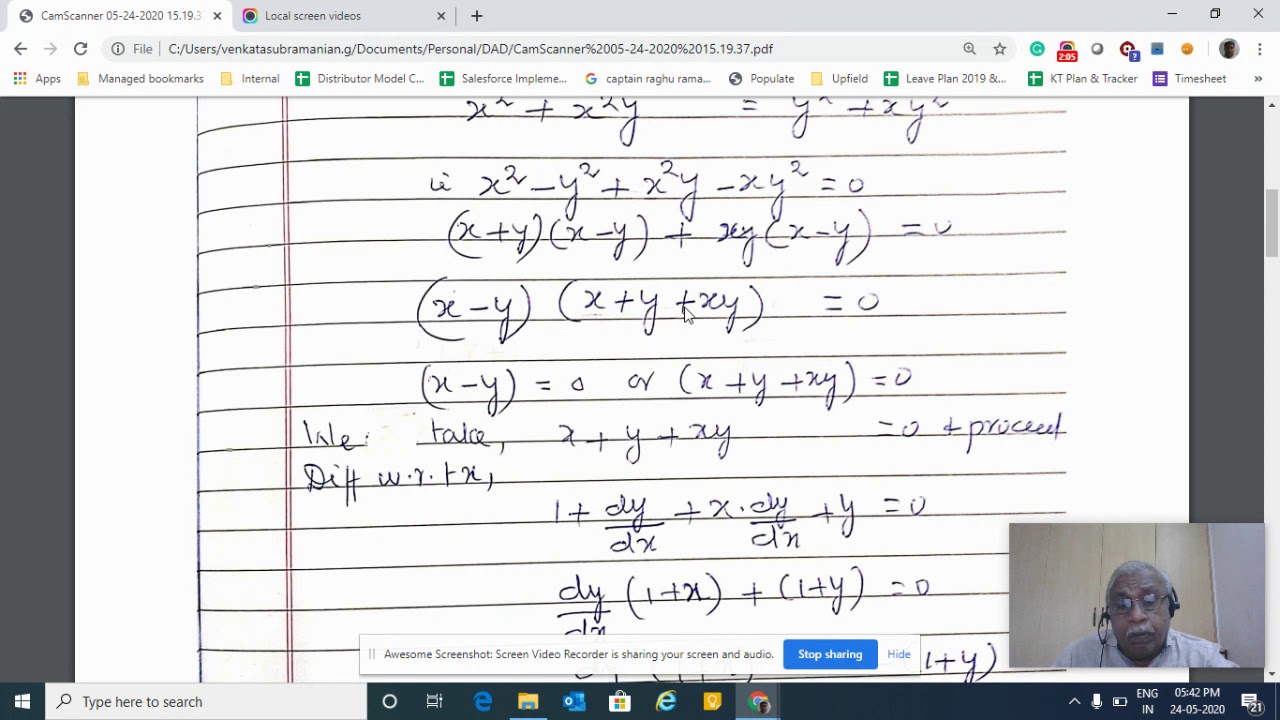 CamScanner 05-24-2020 15.19.37
Local screen videos
File C:/Users/venkatasubramanian.g/Documents/Personal/DAD/CamScanner%2005-24-2020%2015.19.37.pdf
2:05
?
Apps Managed bookmarks Internal Distributor Model C... Salesforce Impleme... captain raghu rama... Populate Upfield Leave Plan 2019 &... KT Plan & Tracker Timesheet »
x² + x²y = y² + xy²
ie x² - y² + x²y - xy² = 0
(x+y)(x-y) + xy(x-y) = 0
(x-y) (x+y+xy) = 0
(x-y) = 0 or (x+y+xy) = 0
We take, x+y+xy = 0 + proceed
Diff w.r.t x,
1 + dy/dx + x. dy/dx + y = 0
dy/dx (1+x) + (1+y) = 0
1+y)
Awesome Screenshot: Screen Video Recorder is sharing your screen and audio. Stop sharing Hide
Type here to search
ENG
IN
05:42 PM
24-05-2020
21